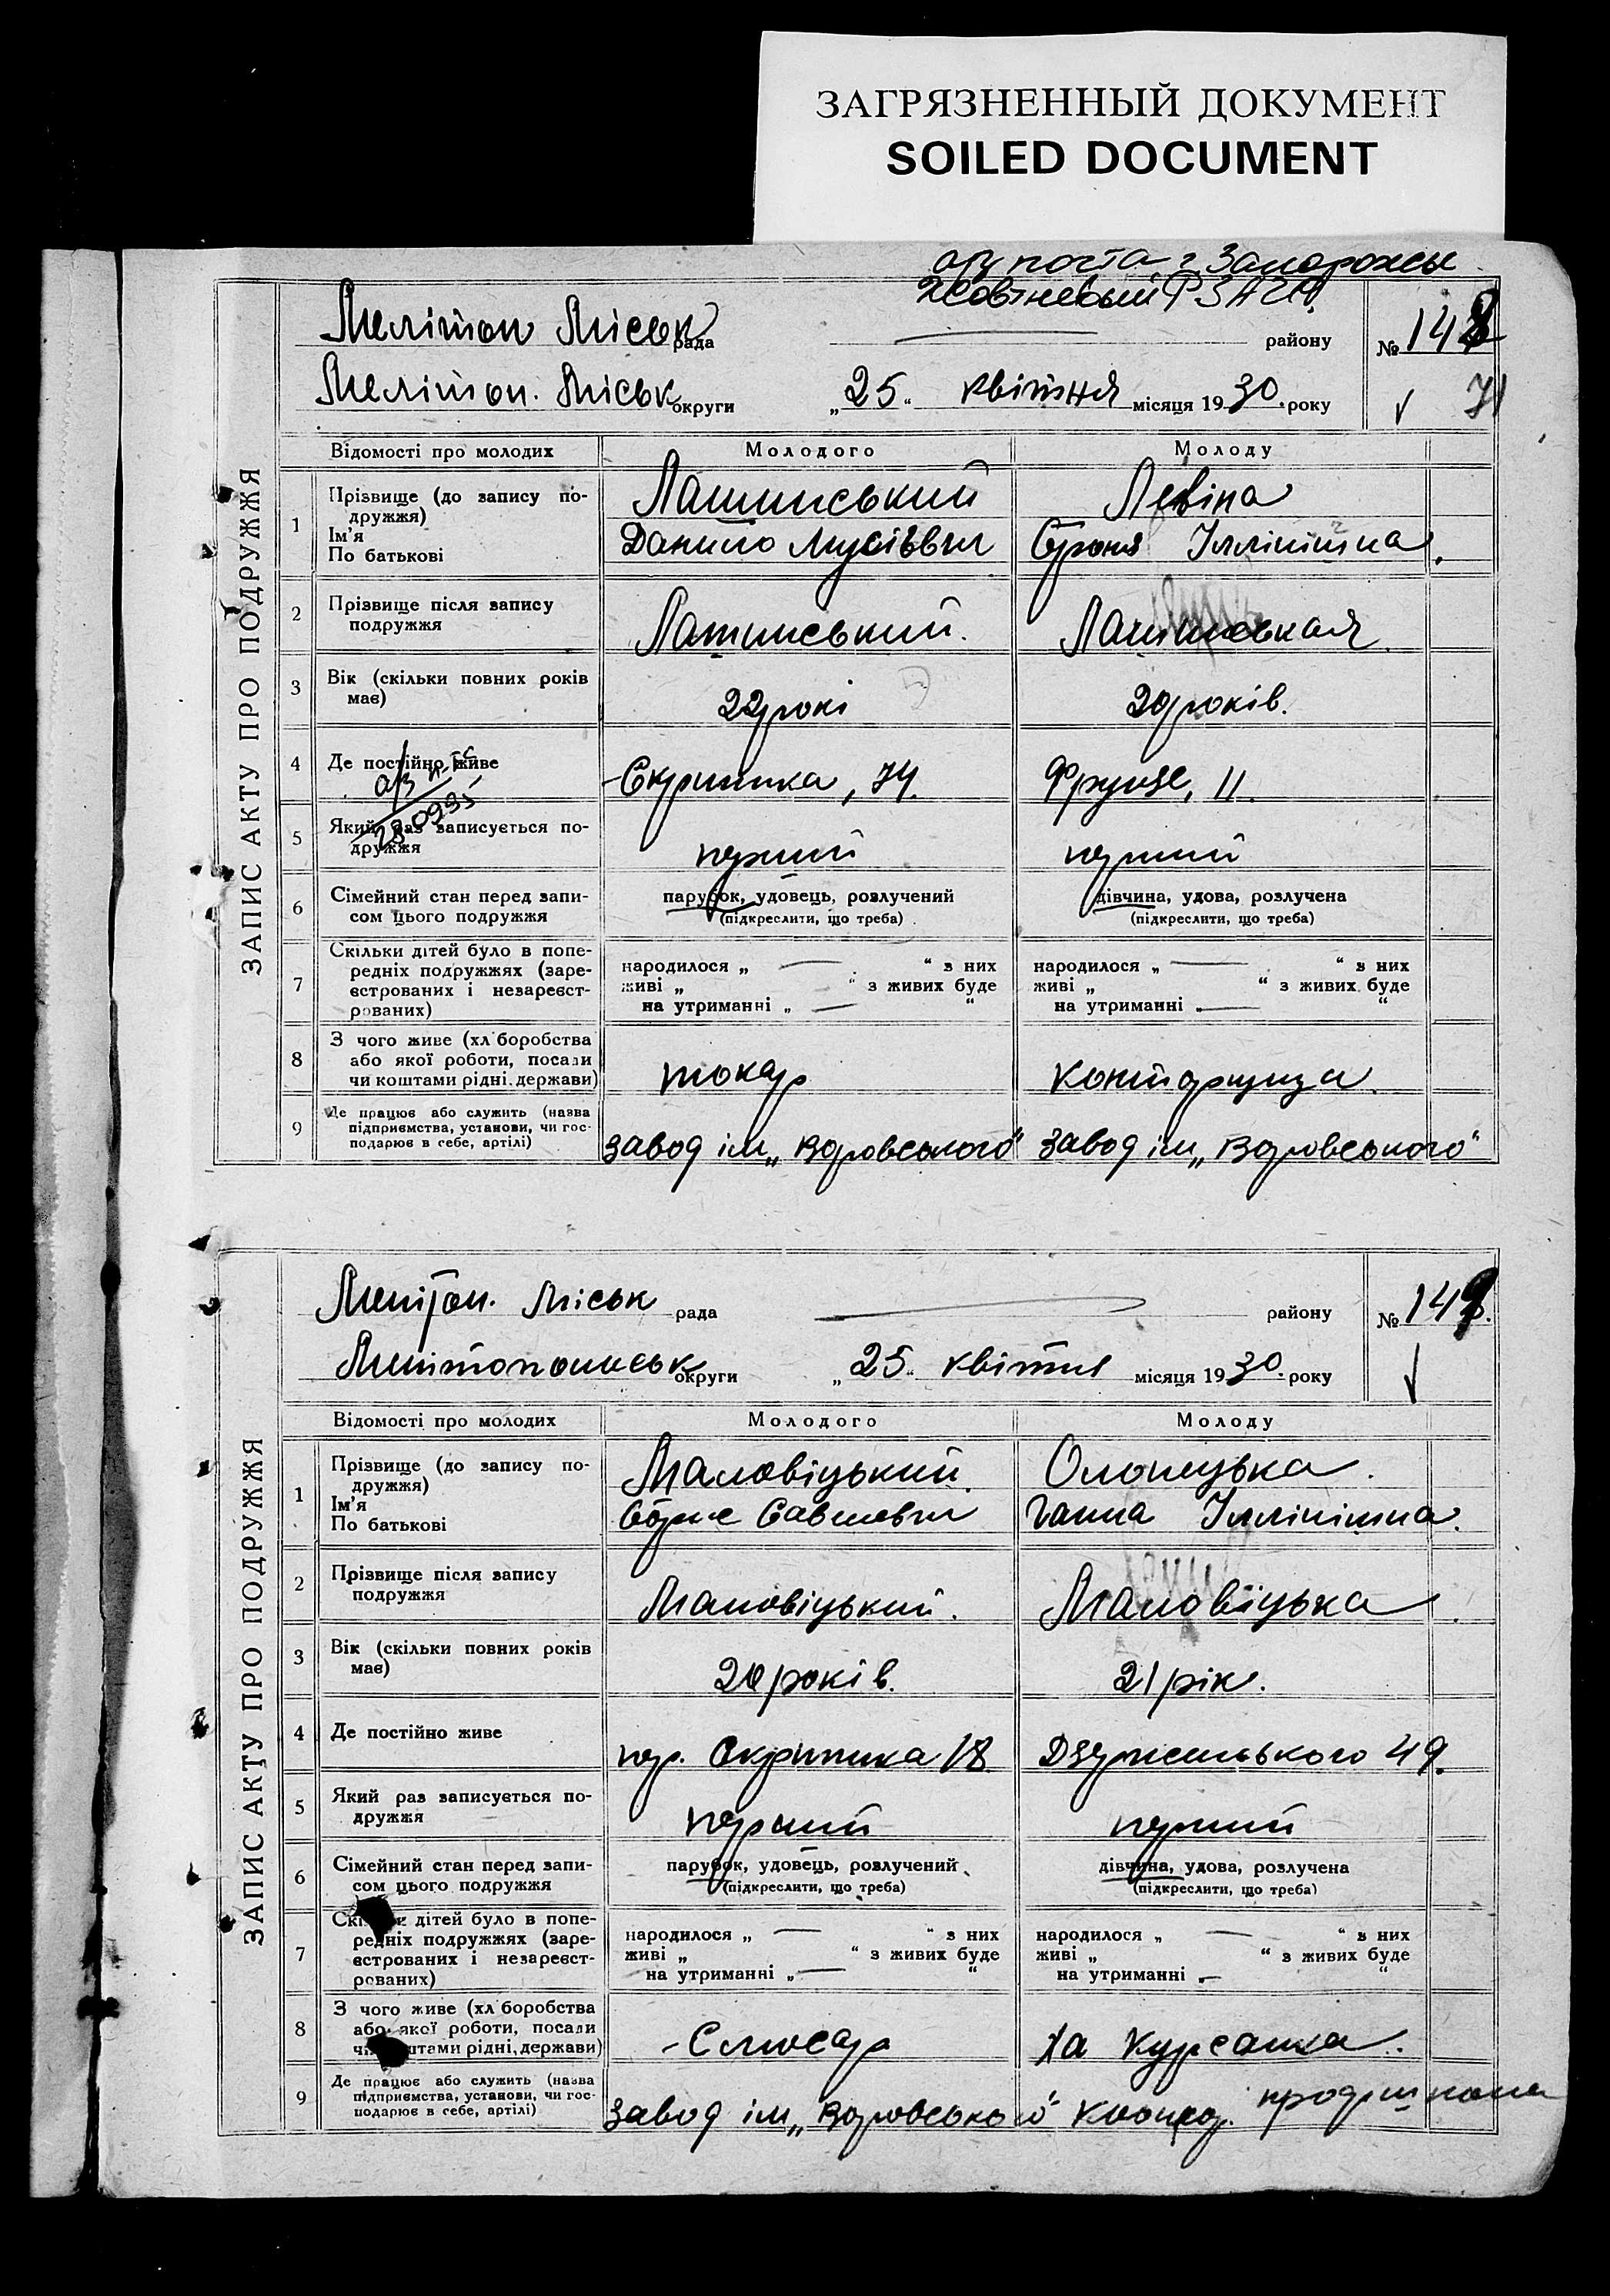 ЗАГРЯЗНЕННЫЙ ДОКУМЕНТ
SOILED DOCUMENT
г. Запорожье
ЗАПИС АКТУ ПРО ПОДРУЖЖЯ
Мелітоп Міськ рада району № 148
Меліто п. Міськ округи „25“ квітня місяця 1930. року 71
Відомості про молодих Молодого Молоду
1 Прізвище (до запису подружжя) Лашинський Левіна
Ім'я
По батькові Данило Мусієвич Іллінішна
2 Прізвище після запису подружжя Лашинський. Лашинськая
3 Вік (скільки повних років має) 22 роки 20 років.
4 Де постійно живе Скрипника, 74. Фрунзе, 11.
5 Який раз записується подружжя перший перший
6 Сімейний стан перед записом цього подружжя парубок, удовець, розлучений дівчина, удова, розлучена
(підкреслити, що треба) (підкреслити, що треба)
7 Скільки дітей було в попередніх подружжях (зареєстрованих і незареєстрованих) народилося „ — “ з них народилося „ — “ з них
живі „ “ з живих буде живі „ “ з живих буде
на утриманні „ — “ на утриманні „ — “
8 З чого живе (хліборобства або якої роботи, посади чи коштами рідні, держави) токар конторщиця
9 Де працює або служить (назва підприємства, установи, чи господарює в себе, артілі) завод ім „Воровського“ завод ім „Воровського“
ЗАПИС АКТУ ПРО ПОДРУЖЖЯ
Меліто п. Міськ рада району № 149.
Мелітопольськ округи „25“ квітня місяця 1930. року
Відомості про молодих Молодого Молоду
1 Прізвище (до запису подружжя) Маловіцький Олонецька.
Ім'я
По батькові Борис Савелевич Ганна Іллінішна.
2 Прізвище після запису подружжя Маловіцький. Маловіцька
3 Вік (скільки повних років має) 20 років. 21 рік.
4 Де постійно живе Скрипника 18 Дзержинського 49.
5 Який раз записується подружжя перший перший
6 Сімейний стан перед записом цього подружжя парубок, удовець, розлучений дівчина, удова, розлучена
(підкреслити, що треба) (підкреслити, що треба)
7 Скільки дітей було в попередніх подружжях (зареєстрованих і незареєстрованих) народилося „ — “ з них народилося „ — “ з них
живі „ “ з живих буде живі „ “ з живих буде
на утриманні „ — “ на утриманні „ — “
8 З чого живе (хліборобства або якої роботи, посади чи коштами рідні, держави) Слюсар Курсантка.
9 Де працює або служить (назва підприємства, установи, чи господарює в себе, артілі) завод ім „Воровського“